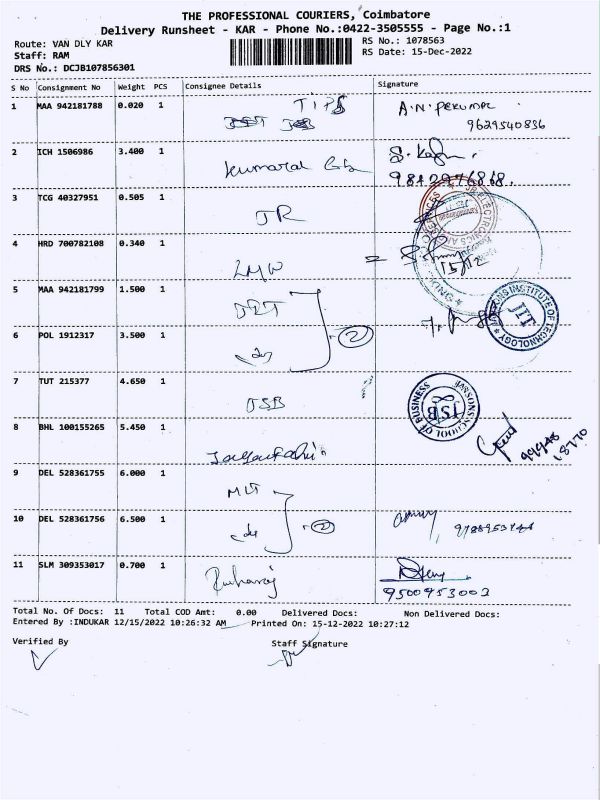 THE PROFESSIONAL COURIERS, Coimbatore
Delivery Runsheet - KAR - Phone No.:0422-3505555 - Page No.:1
Route: VAN DLY KAR RS No.: 1078563
Staff: RAM RS Date: 15-Dec-2022
DRS No.: DCJB107856301
S No Consignment No Weight PCS Consignee Details Signature
1 MAA 942181788 0.020 1 TIPS A.N. PERUMAL
9629540836
2 ICH 1506986 3.400 1
9812976868.
3 TCG 40327951 0.505 1 JR
4 HRD 700782108 0.340 1 LMW
5 MAA 942181799 1.500 1
6 POL 1912317 3.500 1 2
JANSONS INSTITUTE OF TECHNOLOGY
JIT
7 TUT 215377 4.650 1 JSB
JANSONS SCHOOL OF BUSINESS
JSB
8 BHL 100155265 5.450 1
9 DEL 528361755 6.000 1 MLT
10 DEL 528361756 6.500 1 2
11 SLM 309353017 0.700 1
9500953003
Total No. Of Docs: 11 Total COD Amt: 0.00 Delivered Docs: Non Delivered Docs:
Entered By :INDUKAR 12/15/2022 10:26:32 AM Printed On: 15-12-2022 10:27:12
Verified By Staff Signature